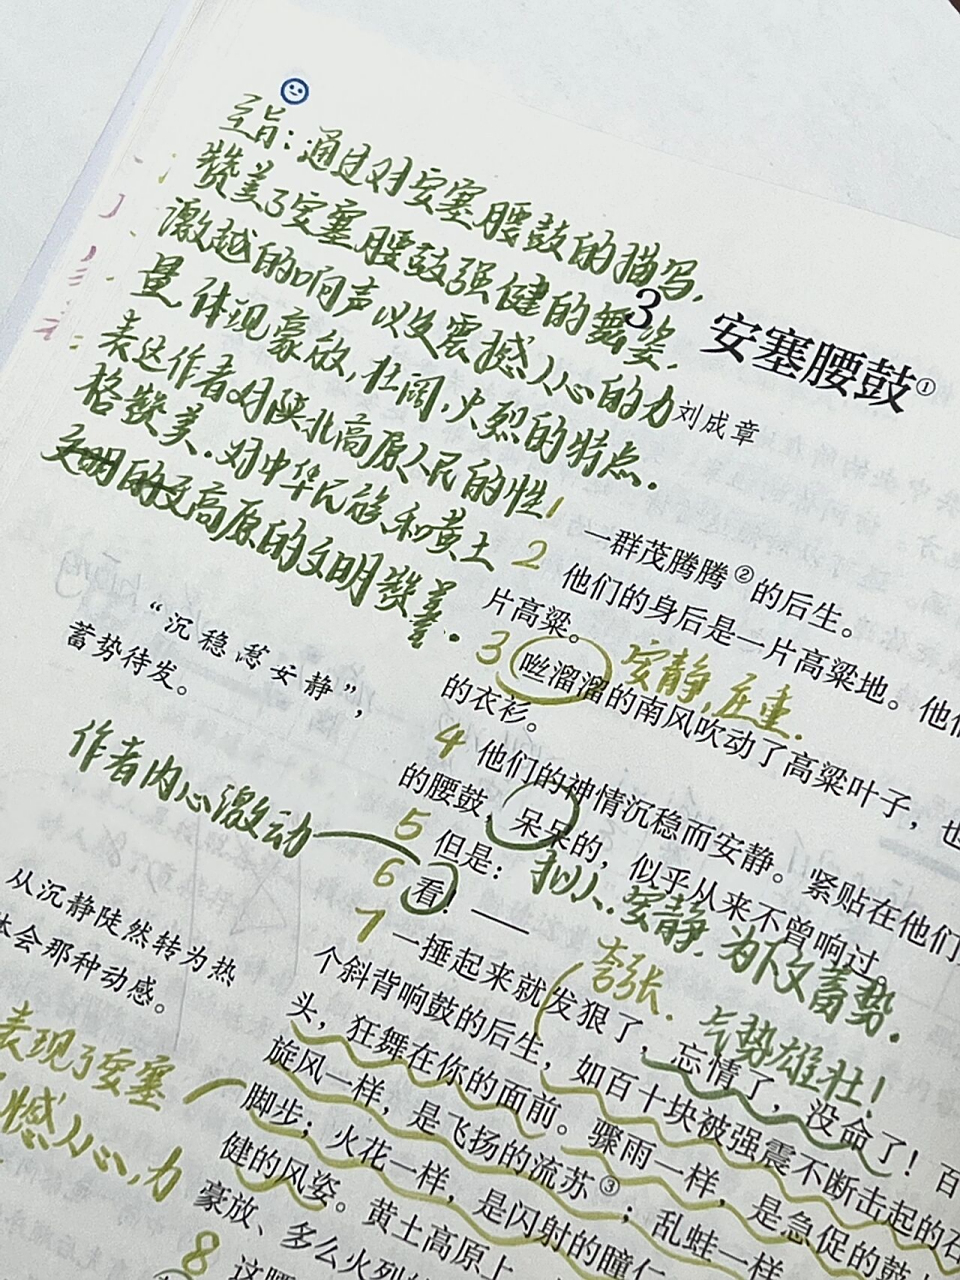 主旨：通过对安塞腰鼓的描写，
赞美了安塞腰鼓强健的舞姿，
激越的响声以及震撼人心的力
量，体现豪放，壮阔，火烈的特点。
表达作者对陕北高原人民的性
格赞美。对中华民族和黄土
高原的文明赞美。
3 安塞腰鼓①
刘成章
1 一群茂腾腾②的后生。
2 他们的身后是一片高粱地。他们
片高粱。
3 咝溜溜的南风吹动了高粱叶子，也
安静，庄重．
的衣衫。
4 他们的神情沉稳而安静。紧贴在他们
的腰鼓，呆呆的，似乎从来不曾响过。
拟人．安静，为下文蓄势．
5 但是：
6 看！——
7 一捶起来就发狠了，忘情了，没命了！百
夸张．气势雄壮！
个斜背响鼓的后生，如百十块被强震不断击起的石
头，狂舞在你的面前。骤雨一样，是急促的鼓
旋风一样，是飞扬的流苏③；乱蛙一样
脚步；火花一样，是闪射的瞳仁
健的风姿。黄土高原上
豪放、多么火烈
8 这腰
“沉稳而安静”，
蓄势待发。
作者内心激动
从沉静陡然转为热
体会那种动感。
表现了安塞
撼人心，力